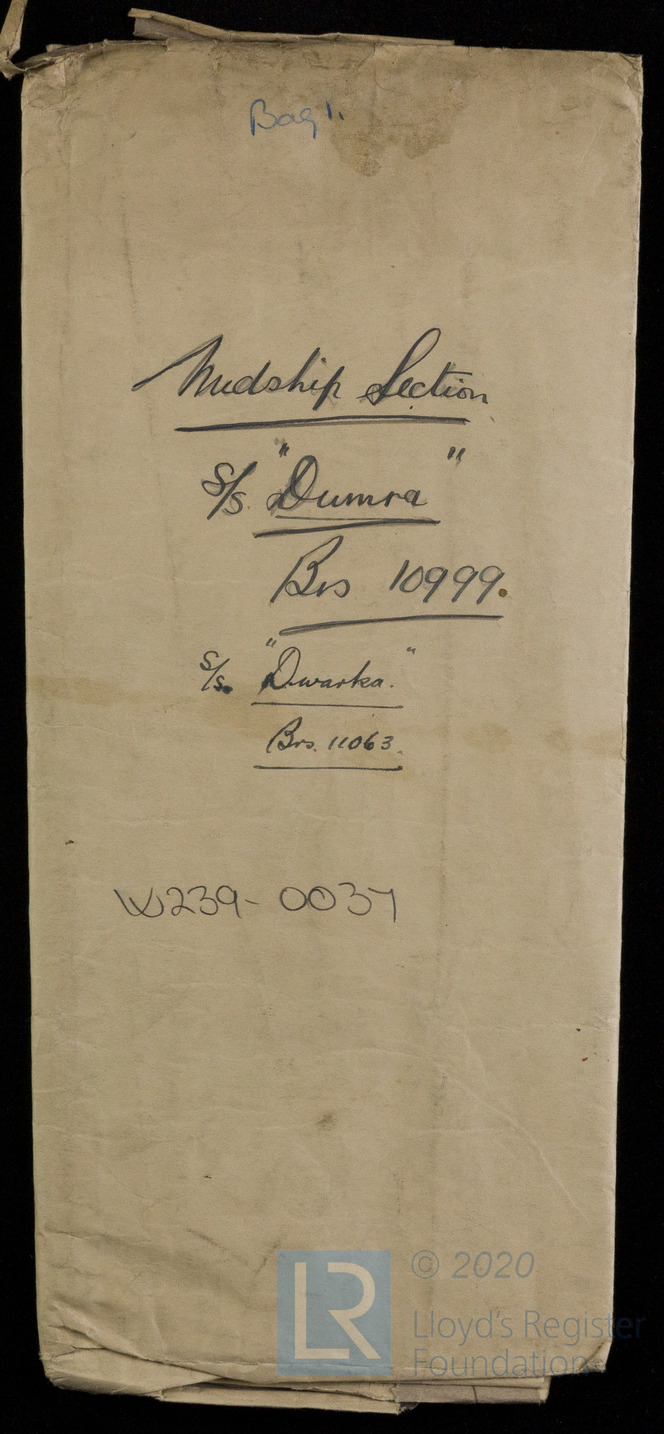 Bag 1.
Midship Section
S/S. "Dumra"
Brs 10999.
S/S. "Dwarka."
Brs. 11063.
W239-0037
LR
© 2020
Lloyd's Register
Foundation